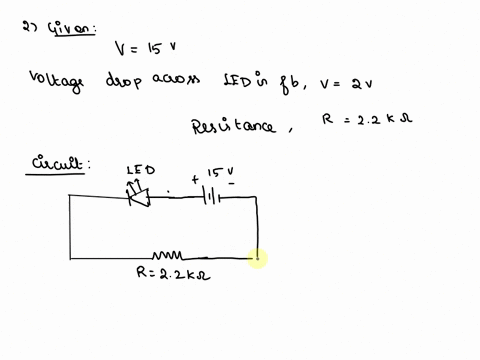 2) Given:
V = 15 V
Voltage drop across LED in fb, V = 2v
Resistance, R = 2.2 k Ω
Circuit:
LED
+ 15 V -
R = 2.2 k Ω